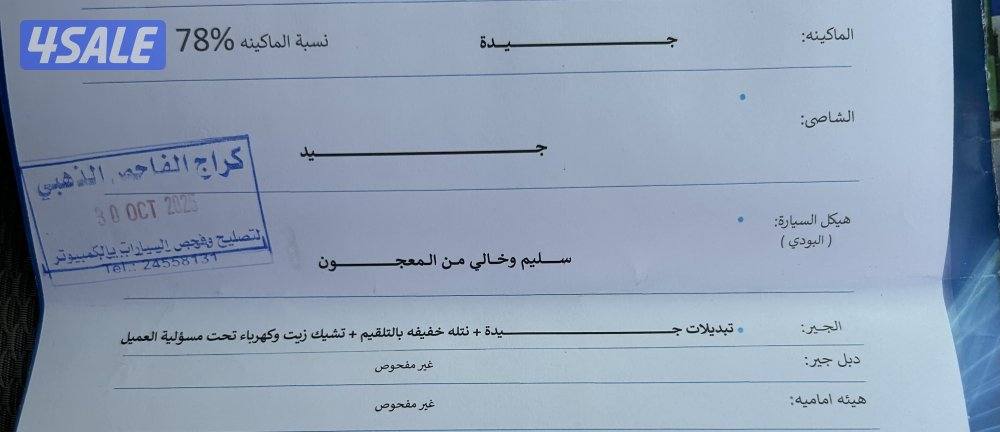 4SALE
الماكينه: جـــــيدة نسبة الماكينه 78%
الشاصي: جـــــيد
كراج الفاحص الذهبي
30 OCT 2025
لتصليح وفحص السيارات بالكمبيوتر
Tel.: 24558131
هيكل السيارة:
( البودي )
سـليم وخـالي مـن الـمعجـــون
الجير: تبديلات جـــــيدة + نتله خفيفه بالتلقيم + تشيك زيت وكهرباء تحت مسؤلية العميل
دبل جير: غير مفحوص
هيئه اماميه: غير مفحوص